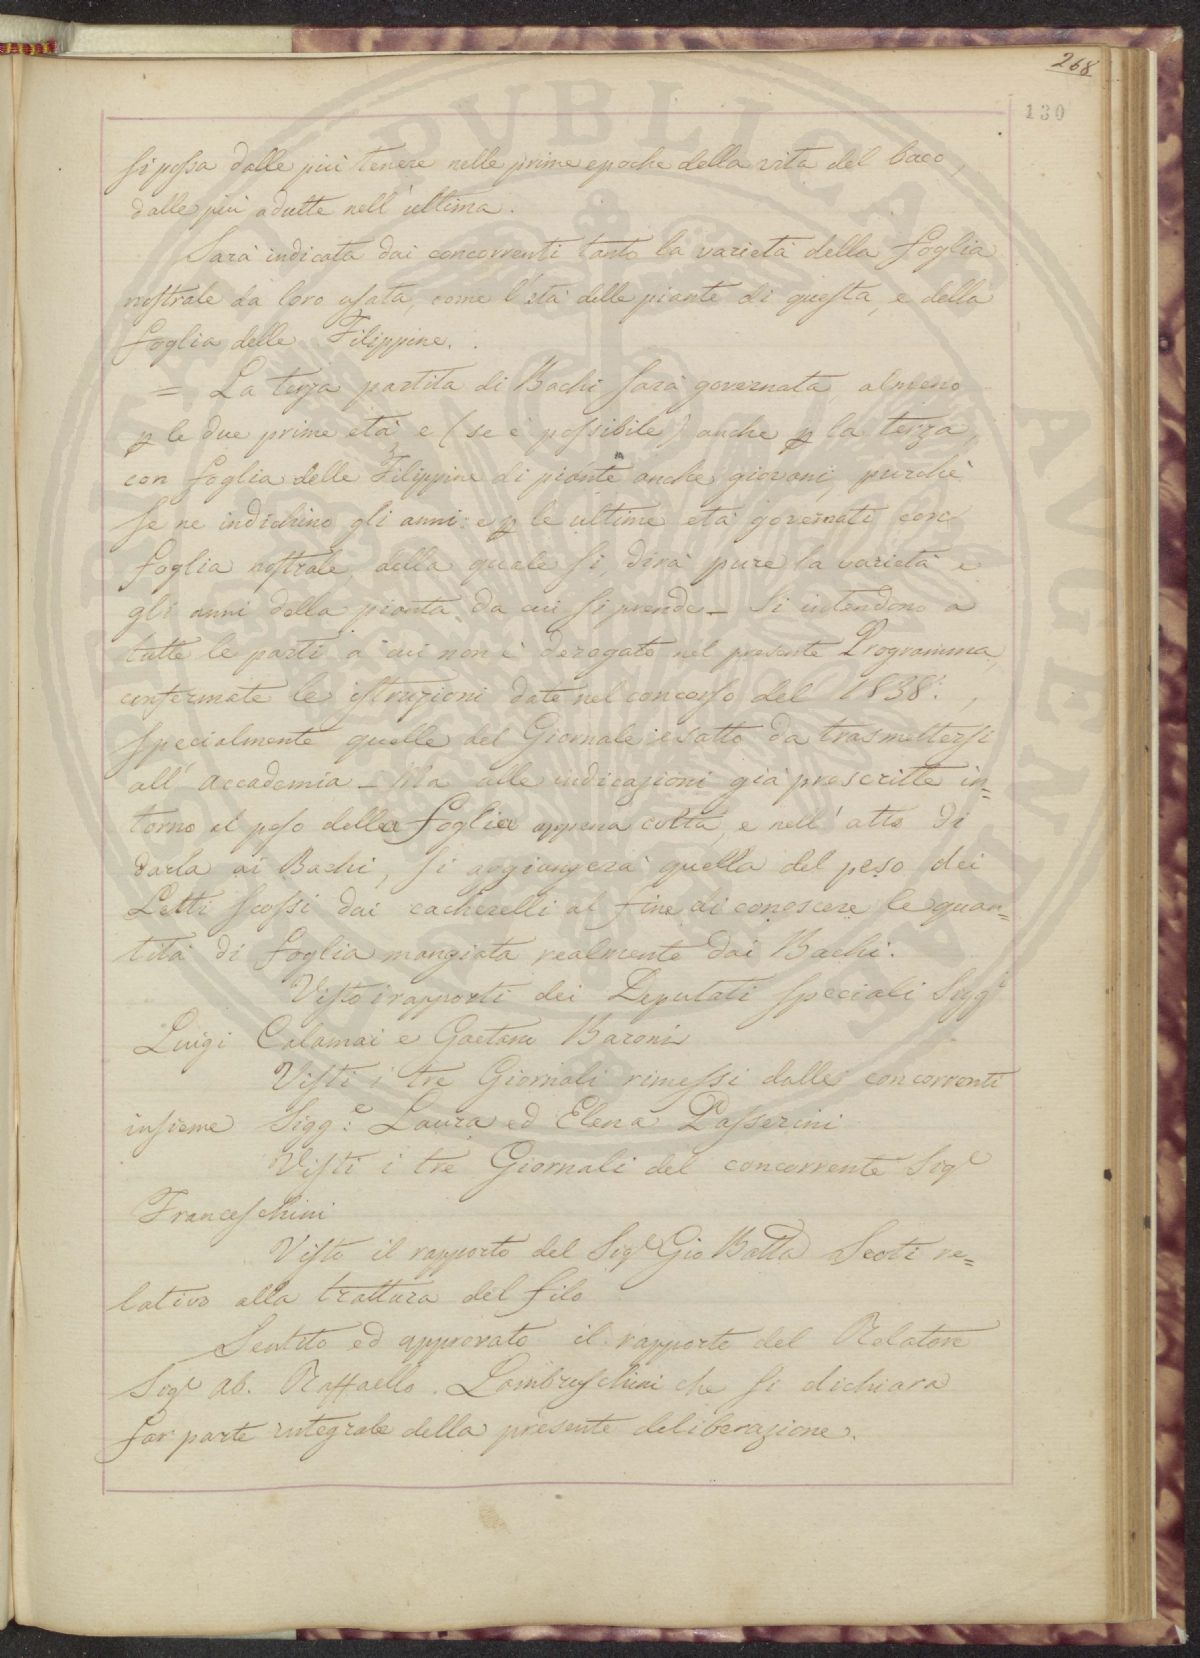 268
130
si possa dalle più tenere nelle prime epoche della vita del baco,
dalle più adulte nell'ultima.
Sarà indicata dai concorrenti tanto la varietà della foglia
nostrale da loro usata, come l'età delle piante di questa, e della
foglia delle Filippine.
= La terza partita di Bachi sarà governata, almeno
p le due prime età e (se è possibile) anche p la terza,
con foglia delle Filippine di piante anche giovani, purchè
se ne indichino gli anni: e p le ultime età governati con
foglia nostrale, della quale si dirà pure la varietà e
gli anni della pianta da cui si prende_ Si intendono a
tutte le parti a cui non è derogato nel presente Programma,
confermate le istruzioni date nel concorso del 1838:,
specialmente quelle del Giornale esatto da trasmettersi
all'accademia_ Ma alle indicazioni già prescritte in=
torno al peso della foglia appena colta, e nell'atto di
darla ai Bachi, si aggiungerà quella del peso dei
Letti scossi dai cacherelli al fine di conoscere le quan=
tità di foglia mangiata realmente dai Bachi.
Visto i rapporti dei Deputati speciali Sigg.i
Luigi Calamai e Gaetano Baroni
Visti i tre Giornali rimessi dalle concorrenti
insieme Sigg:e Laura ed Elena Passerini
Visti i tre Giornali del concorrente Sig.e
Franceschini
Visto il rapporto del Sig.e Gio Batta Scoti re=
lativo alla trattura del filo
Sentito ed approvato il rapporto del Relatore
Sig.e Ab. Raffaello Lambruschini che si dichiara
far parte integrale della presente deliberazione.